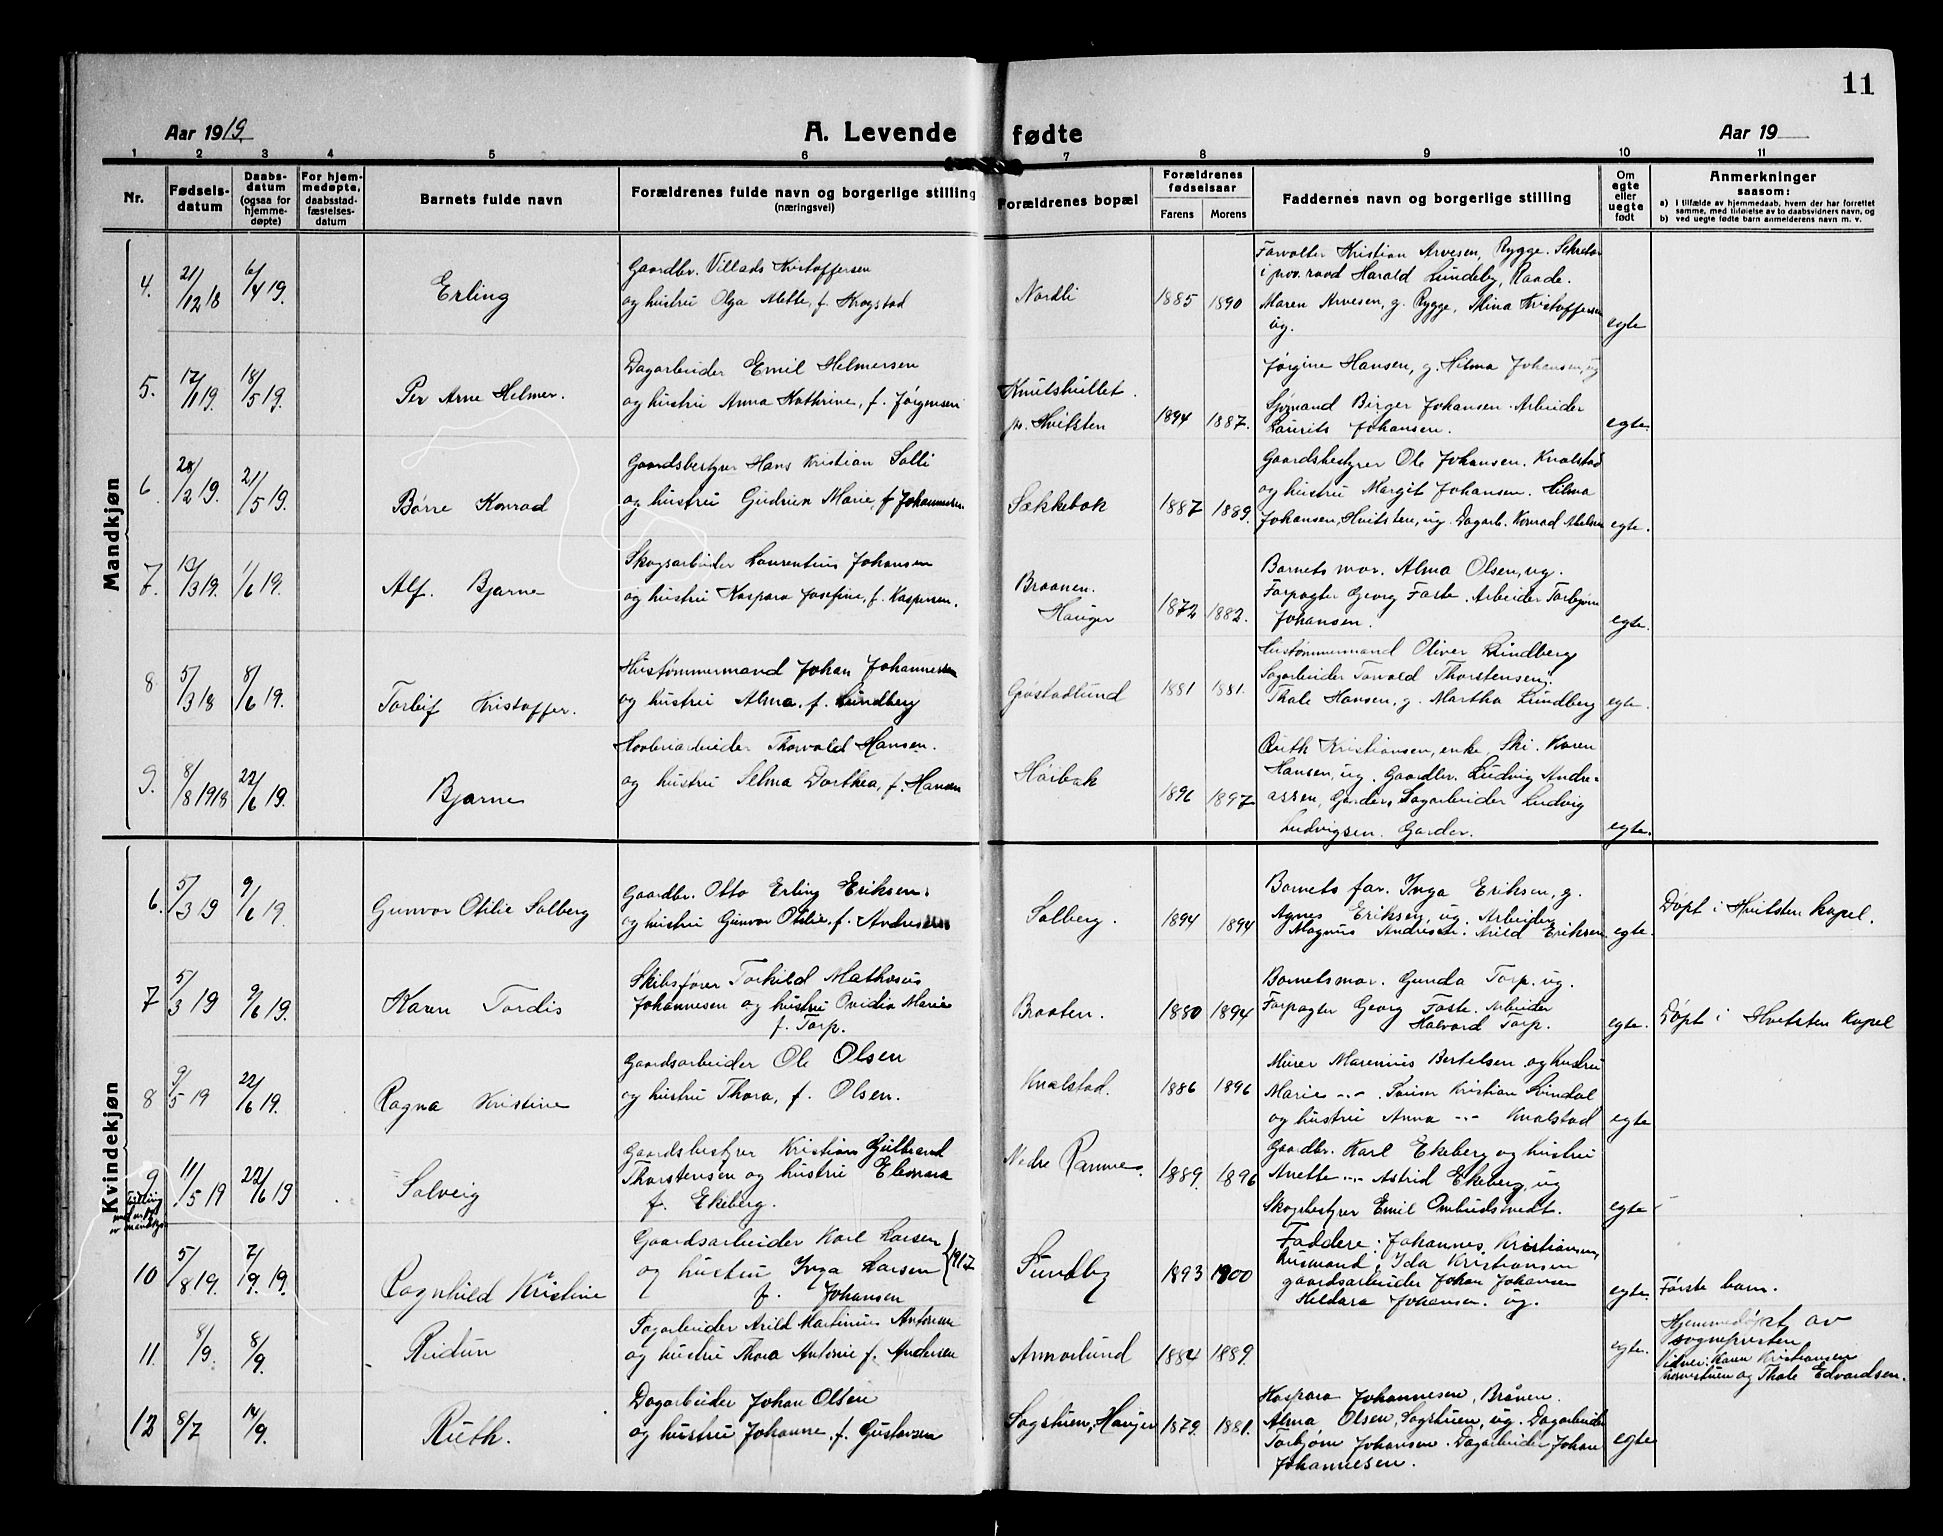 11
Aar 1919
A. Levende fødte
Aar 19
1 2 3 4 5 6 7 8 9 10 11
Nr.
Fødsels-
datum
Daabs-
datum
(ogsaa for
hjemme-
døpte)
For hjem-
medøpte,
daabsstad-
fæstelses-
datum
Barnets fulde navn
Forældrenes fulde navn og borgerlige stilling
(næringsvei)
Forældrenes bopæl
Forældrenes
fødselsaar
Farens Morens
Faddernes navn og borgerlige stilling
Om
egte
eller
uegte
født
Anmerkninger
saasom:
a) I tilfælde av hjemmedaab, hvem der har forrettet
samme, med tilføielse av to daabsvidners navn, og
b) ved uegte fødte barn anmelderens navn m. v.
Mandkjøn
4.
21/12 18
6/4 19.
Erling
Gaardbr. Villads Kristoffersen
og hustru Olga Alette, f. Krogstad
Nordli
1885 1890
Forvalter Kristian Arvesen, Rygge. Sekretær
i prov.raad Harald Lundeby, Raade.
Maren Arvesen, g. Rygge, Mina Kristoffersen
ug.
egte
5.
17/1 19.
18/5 19.
Per Arne Helmer.
Dagarbeider Emil Helmersen
og hustru Anna Kathrine, f. Jørgensen
Knutshullet.
pr. Hvitsten
1894 1887.
Jørgine Hansen, g. Hilma Johansen, ug
Sjømand Birger Johansen. Arbeider
Laurits Johansen.
egte.
6.
28/2 19.
21/5 19.
Børre Konrad
Gaardsbestyrer Hans Kristian Solli
og hustru Gudrun Marie, f. Johannesen
Sækkebæk
1887 1889.
Gaardsbestyrer Ole Johansen. Knalstad
og hustru Margit Johansen. Hilma
Johansen, Hvitsten, ug. Dagarb. Konrad Abelsen
egte.
7.
13/3 19.
1/6 19.
Alf. Bjarne
Skogsarbeider Laurentius Johansen
og hustru Kaspara Josefine, f. Kaspersen.
Braanen.
Hauger
1872 1882.
Barnets mor. Alma Olsen, ug.
Forpagter Georg Faste. Arbeider Torbjørn
Johansen.
egte.
8
5/3 18
8/6 19.
Torleif Kristoffer.
Hustømmermand Johan Johannesen
og hustru Alma, f. Lundberg
Gjøstadlund
1881 1881.
Hustømmermand Oliver Lundberg
Sagarbeider Torvald Thorstensen.
Thale Hansen, g. Martha Lundberg
egte.
9.
8/8 1918
22/6 19.
Bjarne
Høvleriarbeider Thorvald Hansen.
og hustru Selma Dorthea, f. Hansen
Høibæk
1896 1897
Ruth Kristiansen, enke, Ski. Karen
Hansen, ug. Gaardbr. Ludvig Andre-
assen, Garder. Sagarbeider Ludvig
Ludvigsen. Garder.
egte.
Kvindekjøn
6.
5/3 19
9/6 19.
Gunvor Otilie Solberg
Gaardbr. Otto Erling Eriksen.
og hustru Gunvor Otilie, f. Andresen
Solberg.
1894 1894
Barnets far. Inga Eriksen, g.
Agnes Eriksen, ug. Arbeider
Magnus Andresen. Arild Eriksen.
egte.
Døpt i Hvitsten kapel.
7
5/3 19
9/6 19.
Karen Tordis
Skibsfører Torkild Mathæus
Johannesen og hustru Ovidia Marie
f. Torp.
Braaten.
1880 1894
Barnets mor. Gunda Torp. ug.
Forpagter Georg Faste. Arbeider
Halvard Torp.
egte.
Døpt i Hvitsten kapel
8
9/5 19
22/6 19.
Ragna Kristine
Gaardsarbeider Ole Olsen
og hustru Thora, f. Olsen.
Knalstad.
1886 1896
Murer Marenius Bertelsen og hustru
Marie -"- . Snuser Kristian Svindal
og hustru Anna -"- Knalstad
egte
9
11/5 19
22/6 19
Solveig
Gaardsbestyrer Kristian Gulbrand
Thorstensen og hustru Eleonora
f. Ekeberg.
Nedre Ramme.
1889. 1896
Gaardbr. Karl Ekeberg og hustru
Anette -"- Astrid Ekeberg, ug
Skogbestyrer Emil Ombudstvedt.
egte
Tvilling
10
5/8 19.
7/9 19.
Ragnhild Kristine
Gaardsarbeider Karl Larsen
og hustru Inga Larsen } 1917
f. Johansen
Sundby
1893 1900
Faddere: Johannes Kristiansen
husmand, Ida Kristiansen
gaardsarbeider Johan Johansen
Heldara Johansen. ug.
egte.
Første barn.
11.
8/9.
8/9.
Reidun
Sagarbeider Arild Martinius Antonsen
og hustru Thora Antonie f. Andersen
Annaslund
1884 1889.
egte.
Hjemmedøpt av
sognepresten
Vidner: Karen Kristiansen
og Thale Edvardsen.
12
8/7
14/9.
Ruth.
Dagarbeider Johan Olsen
og hustru Johanne, f. Gustavsen
Sagstuen, Hauger
1879. 1881.
Kaspara Johannesen, Brånen.
Alma Olsen, Sagstuen, ug. Dagarbeider
Torbjørn Johansen. Dagarbeider Johan
Johannesen.
egte